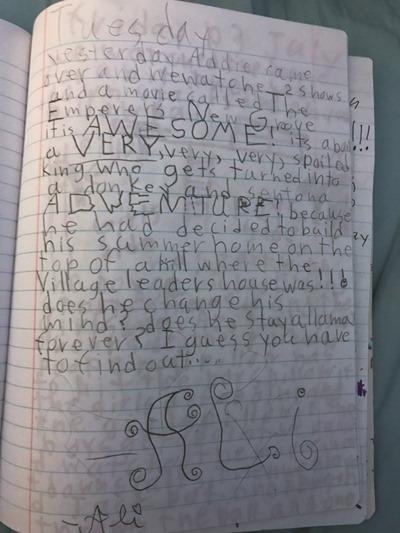 Tuesday
yesterday Addie came
over and we watched 2 shows
and a movie called The
Empeřers New Groove
it is AWESOME! its about
a VERY, very, very, spoiled
king who gets turned into
a donkey and sent on a
ADVENTURE, because
he had decided to build
his summer home on the
top of a hill where the
Village leaders house was!!!
does he change his
mind? does he stay a llama
forever? I guess you have
to find out....
ALi
-Ali